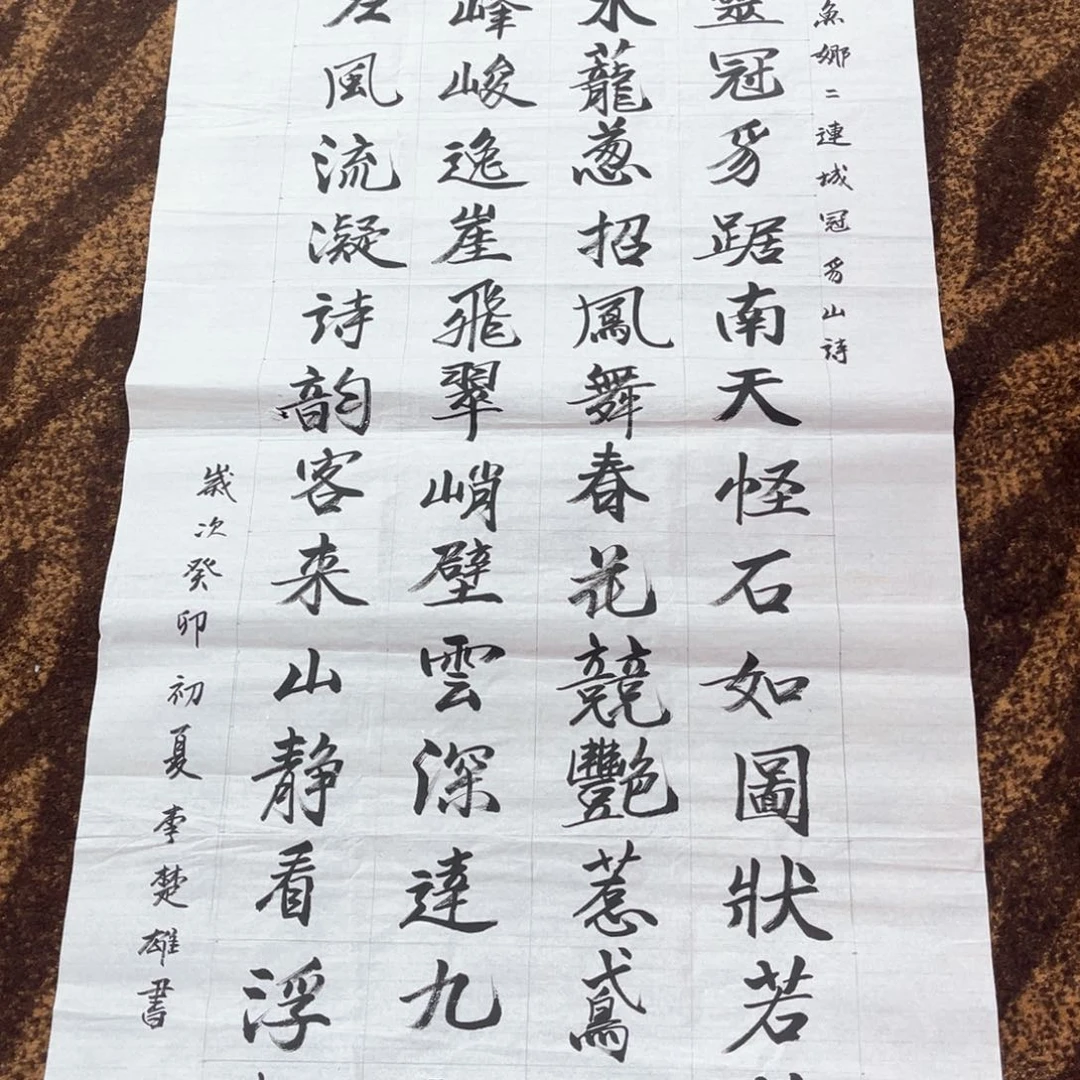 魚娜二連城冠豸山詩
靈冠豸踞南天怪石如圖狀若
木蘢蔥招鳳舞春花競艷惹鳶
峰峻逸崖飛翠峭壁雲深達九
風流凝詩韵客来山静看浮
歲次癸卯初夏李楚雄書